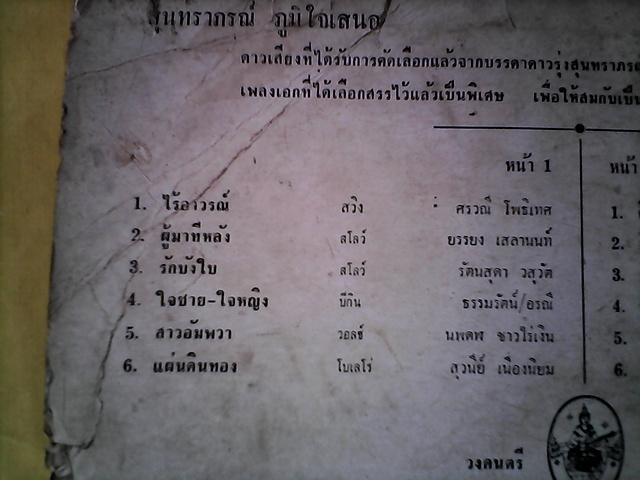 สุนทราภรณ์ ภูมิใจเสนอ
ดาวเสียงที่ได้รับการคัดเลือกแล้วจากบรรดาดาวรุ่งสุนทราภรณ์
เพลงเอกที่ได้เลือกสรรไว้แล้วเป็นพิเศษ เพื่อให้สมกับเป็น
หน้า 1 หน้า
1. ไร้อาวรณ์ สวิง : ศรวณี โพธิเทศ 1.
2. ผู้มาทีหลัง สโลว์ ยรรยง เสลานนท์ 2.
3. รักบังใบ สโลว์ รัตนสุดา วสุวัต 3.
4. ใจชาย-ใจหญิง บีกิน ธรรมรัตน์/อรณี 4.
5. สาวอัมพวา วอลซ์ นพดฬ ชาวไร่เงิน 5.
6. แผ่นดินทอง โบเลโร่ สุวนีย์ เนื่องนิยม 6.
วงดนตรี